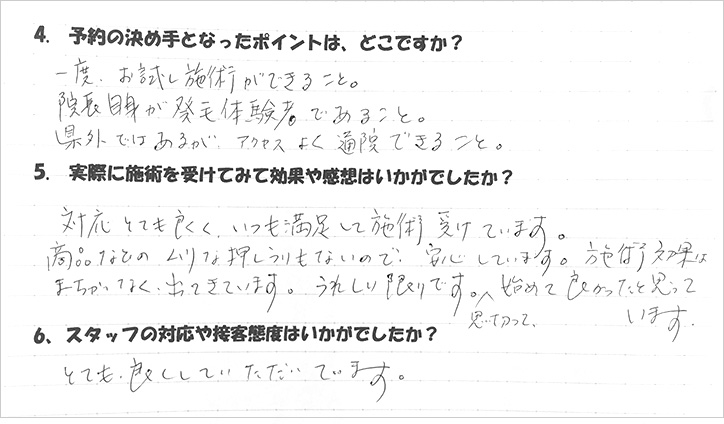 4. 予約の決め手となったポイントは、どこですか？
一度、お試し施術ができること。
院長自身が発毛体験者であること。
県外ではあるが、アクセスよく通院できること。
5. 実際に施術を受けてみて効果や感想はいかがでしたか？
対応とても良くく、いつも満足して施術受けています。
商品などのムリな押しうりもないので、安心しています。施術効果は
まちがいなく、出てきています。うれしい限りです。^始めて良かったと思って
思い切って、います。
6、スタッフの対応や接客態度はいかがでしたか？
とても、良くしていただいています。